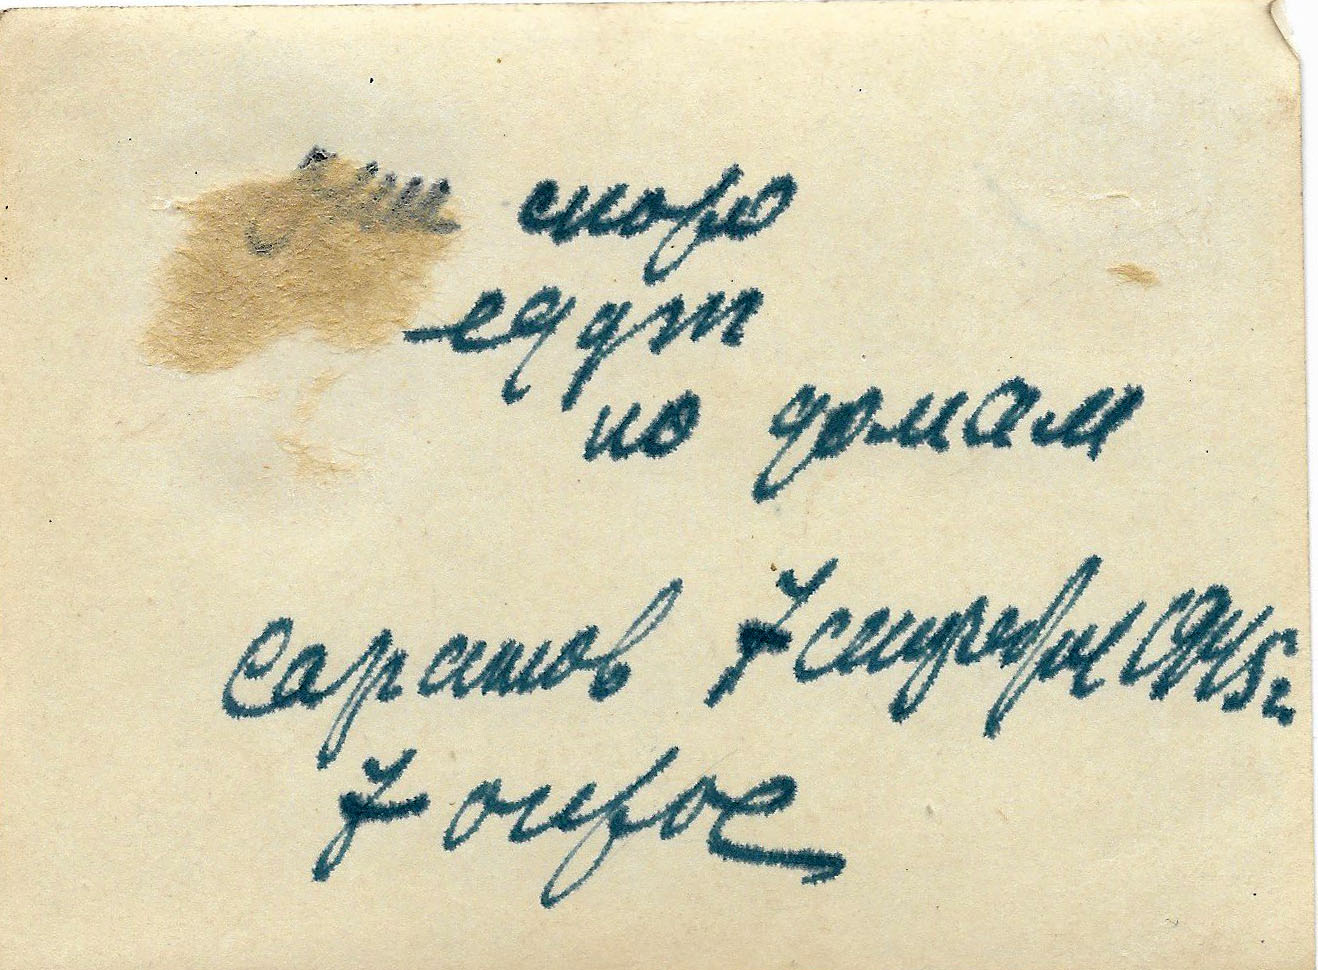 скоро
едут
по домам
Саратов 7 сентября 1945 г.
7 окрос